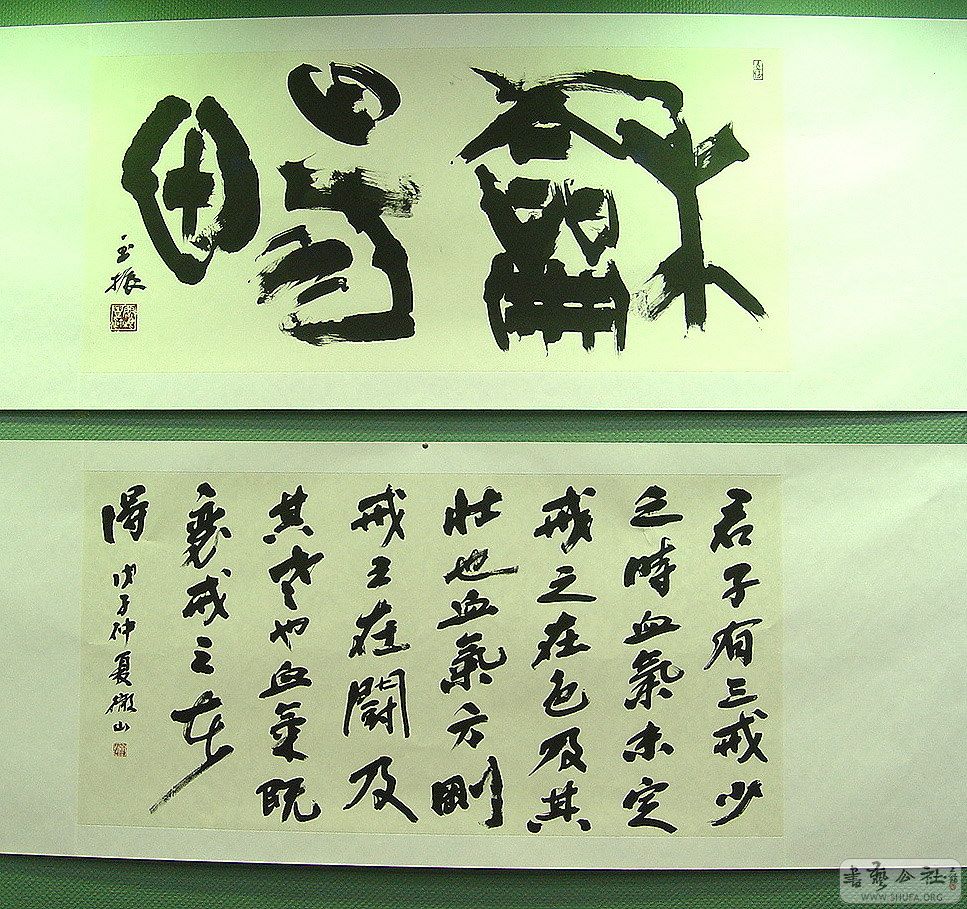 龢暢
玉振
君子有三戒少
之時血氣未定
戒之在色及其
壯也血氣方剛
戒之在闘及
其老也血氣既
衰戒之在
得
戊子仲夏山
書藝公社
WWW.SHUFA.ORG